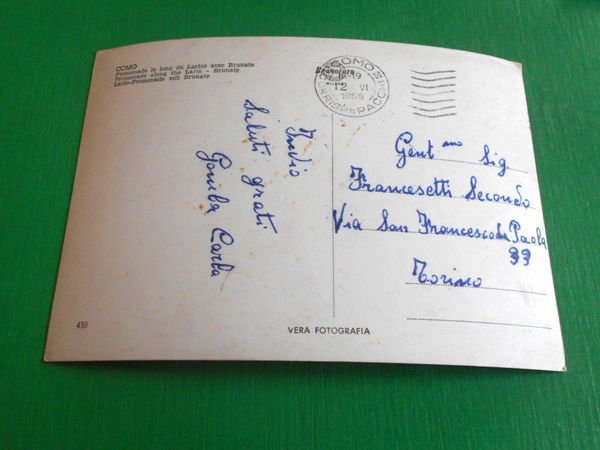 COMO
Promenade le long du Larius avec Brunate
Promenade along the Lario - Brunate
Lario-Promenade mit Brunate
COMO
12 VI
1958
CORRISP PACCHI
Invio
Saluti grati
Gomba Carla
Gent mo Sig.
Francesetti Secondo
Via San Francesco da Paola
39
Torino
419
VERA FOTOGRAFIA